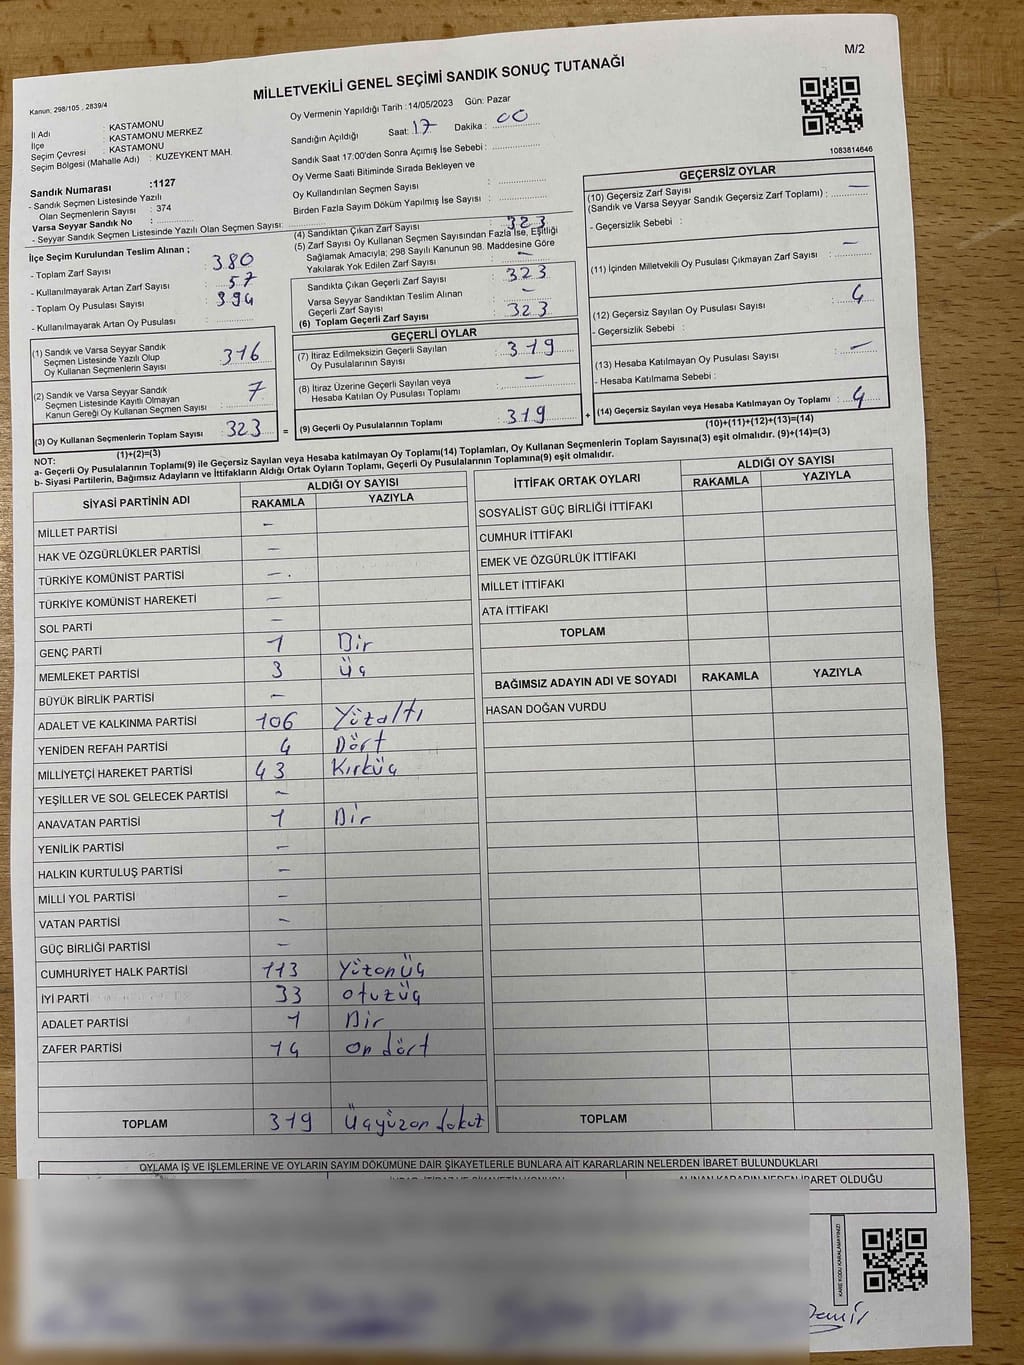 M/2
MİLLETVEKİLİ GENEL SEÇİMİ SANDIK SONUÇ TUTANAĞI
Kanun: 298/105 , 2839/4
Oy Vermenin Yapıldığı Tarih :14/05/2023 Gün: Pazar
İl Adı : KASTAMONU
İlçe : KASTAMONU MERKEZ
Seçim Çevresi : KASTAMONU
Seçim Bölgesi (Mahalle Adı) : KUZEYKENT MAH.
Sandığın Açıldığı Saat: 17 Dakika : 00
Sandık Saat 17.00'den Sonra Açımış İse Sebebi :
Oy Verme Saati Bitiminde Sırada Bekleyen ve
Oy Kullandırılan Seçmen Sayısı :
Birden Fazla Sayım Döküm Yapılmış İse Sayısı :
1083814646
Sandık Numarası :1127
- Sandık Seçmen Listesinde Yazılı
Olan Seçmenlerin Sayısı : 374
Varsa Seyyar Sandık No :
- Seyyar Sandık Seçmen Listesinde Yazılı Olan Seçmen Sayısı:
İlçe Seçim Kurulundan Teslim Alınan ;
- Toplam Zarf Sayısı : 380
- Kullanılmayarak Artan Zarf Sayısı : 57
- Toplam Oy Pusulası Sayısı : 394
- Kullanılmayarak Artan Oy Pusulası :
(1) Sandık ve Varsa Seyyar Sandık
Seçmen Listesinde Yazılı Olup
Oy Kullanan Seçmenlerin Sayısı : 316
(2) Sandık ve Varsa Seyyar Sandık
Seçmen Listesinde Kayıtlı Olmayan
Kanun Gereği Oy Kullanan Seçmen Sayısı : 7
(3) Oy Kullanan Seçmenlerin Toplam Sayısı : 323 =
(1)+(2)=(3)
(4) Sandıktan Çıkan Zarf Sayısı : 323
(5) Zarf Sayısı Oy Kullanan Seçmen Sayısından Fazla İse, Eşitliği
Sağlamak Amacıyla; 298 Sayılı Kanunun 98. Maddesine Göre
Yakılarak Yok Edilen Zarf Sayısı : –
Sandıkta Çıkan Geçerli Zarf Sayısı : 323
Varsa Seyyar Sandıktan Teslim Alınan
Geçerli Zarf Sayısı : –
(6) Toplam Geçerli Zarf Sayısı : 323
GEÇERLİ OYLAR
(7) İtiraz Edilmeksizin Geçerli Sayılan
Oy Pusulalarının Sayısı : 319
(8) İtiraz Üzerine Geçerli Sayılan veya
Hesaba Katılan Oy Pusulası Toplamı : –
(9) Geçerli Oy Pusulalarının Toplamı : 319 +
GEÇERSİZ OYLAR
(10) Geçersiz Zarf Sayısı
(Sandık ve Varsa Seyyar Sandık Geçersiz Zarf Toplamı) : –
- Geçersizlik Sebebi :
(11) İçinden Milletvekili Oy Pusulası Çıkmayan Zarf Sayısı : –
(12) Geçersiz Sayılan Oy Pusulası Sayısı : 4
- Geçersizlik Sebebi :
(13) Hesaba Katılmayan Oy Pusulası Sayısı : –
- Hesaba Katılmama Sebebi :
(14) Geçersiz Sayılan veya Hesaba Katılmayan Oy Toplamı : 4
(10)+(11)+(12)+(13)=(14)
NOT:
a- Geçerli Oy Pusulalarının Toplamı(9) ile Geçersiz Sayılan veya Hesaba katılmayan Oy Toplamı(14) Toplamları, Oy Kullanan Seçmenlerin Toplam Sayısına(3) eşit olmalıdır. (9)+(14)=(3)
b- Siyasi Partilerin, Bağımsız Adayların ve İttifakların Aldığı Ortak Oyların Toplamı, Geçerli Oy Pusulalarının Toplamına(9) eşit olmalıdır.
SİYASİ PARTİNİN ADI ALDIĞI OY SAYISI
RAKAMLA YAZIYLA
MİLLET PARTİSİ –
HAK VE ÖZGÜRLÜKLER PARTİSİ –
TÜRKİYE KOMÜNİST PARTİSİ –
TÜRKİYE KOMÜNİST HAREKETİ –
SOL PARTİ –
GENÇ PARTİ 1 Bir
MEMLEKET PARTİSİ 3 Üç
BÜYÜK BİRLİK PARTİSİ –
ADALET VE KALKINMA PARTİSİ 106 Yüzaltı
YENİDEN REFAH PARTİSİ 4 Dört
MİLLİYETÇİ HAREKET PARTİSİ 43 Kırküç
YEŞİLLER VE SOL GELECEK PARTİSİ –
ANAVATAN PARTİSİ 1 Bir
YENİLİK PARTİSİ –
HALKIN KURTULUŞ PARTİSİ –
MİLLİ YOL PARTİSİ –
VATAN PARTİSİ –
GÜÇ BİRLİĞİ PARTİSİ –
CUMHURİYET HALK PARTİSİ 113 Yüzonüç
İYİ PARTİ 33 otuzüç
ADALET PARTİSİ 1 Bir
ZAFER PARTİSİ 14 on dört
TOPLAM 319 Üçyüzon dokuz
İTTİFAK ORTAK OYLARI ALDIĞI OY SAYISI
RAKAMLA YAZIYLA
SOSYALİST GÜÇ BİRLİĞİ İTTİFAKI
CUMHUR İTTİFAKI
EMEK VE ÖZGÜRLÜK İTTİFAKI
MİLLET İTTİFAKI
ATA İTTİFAKI
TOPLAM
BAĞIMSIZ ADAYIN ADI VE SOYADI RAKAMLA YAZIYLA
HASAN DOĞAN VURDU
TOPLAM
OYLAMA İŞ VE İŞLEMLERİNE VE OYLARIN SAYIM DÖKÜMÜNE DAİR ŞİKAYETLERLE BUNLARA AİT KARARLARIN NELERDEN İBARET BULUNDUKLARI
ALINAN KARARIN NEDEN İBARET OLDUĞU
KARE KODU KARALAMAYINIZ!